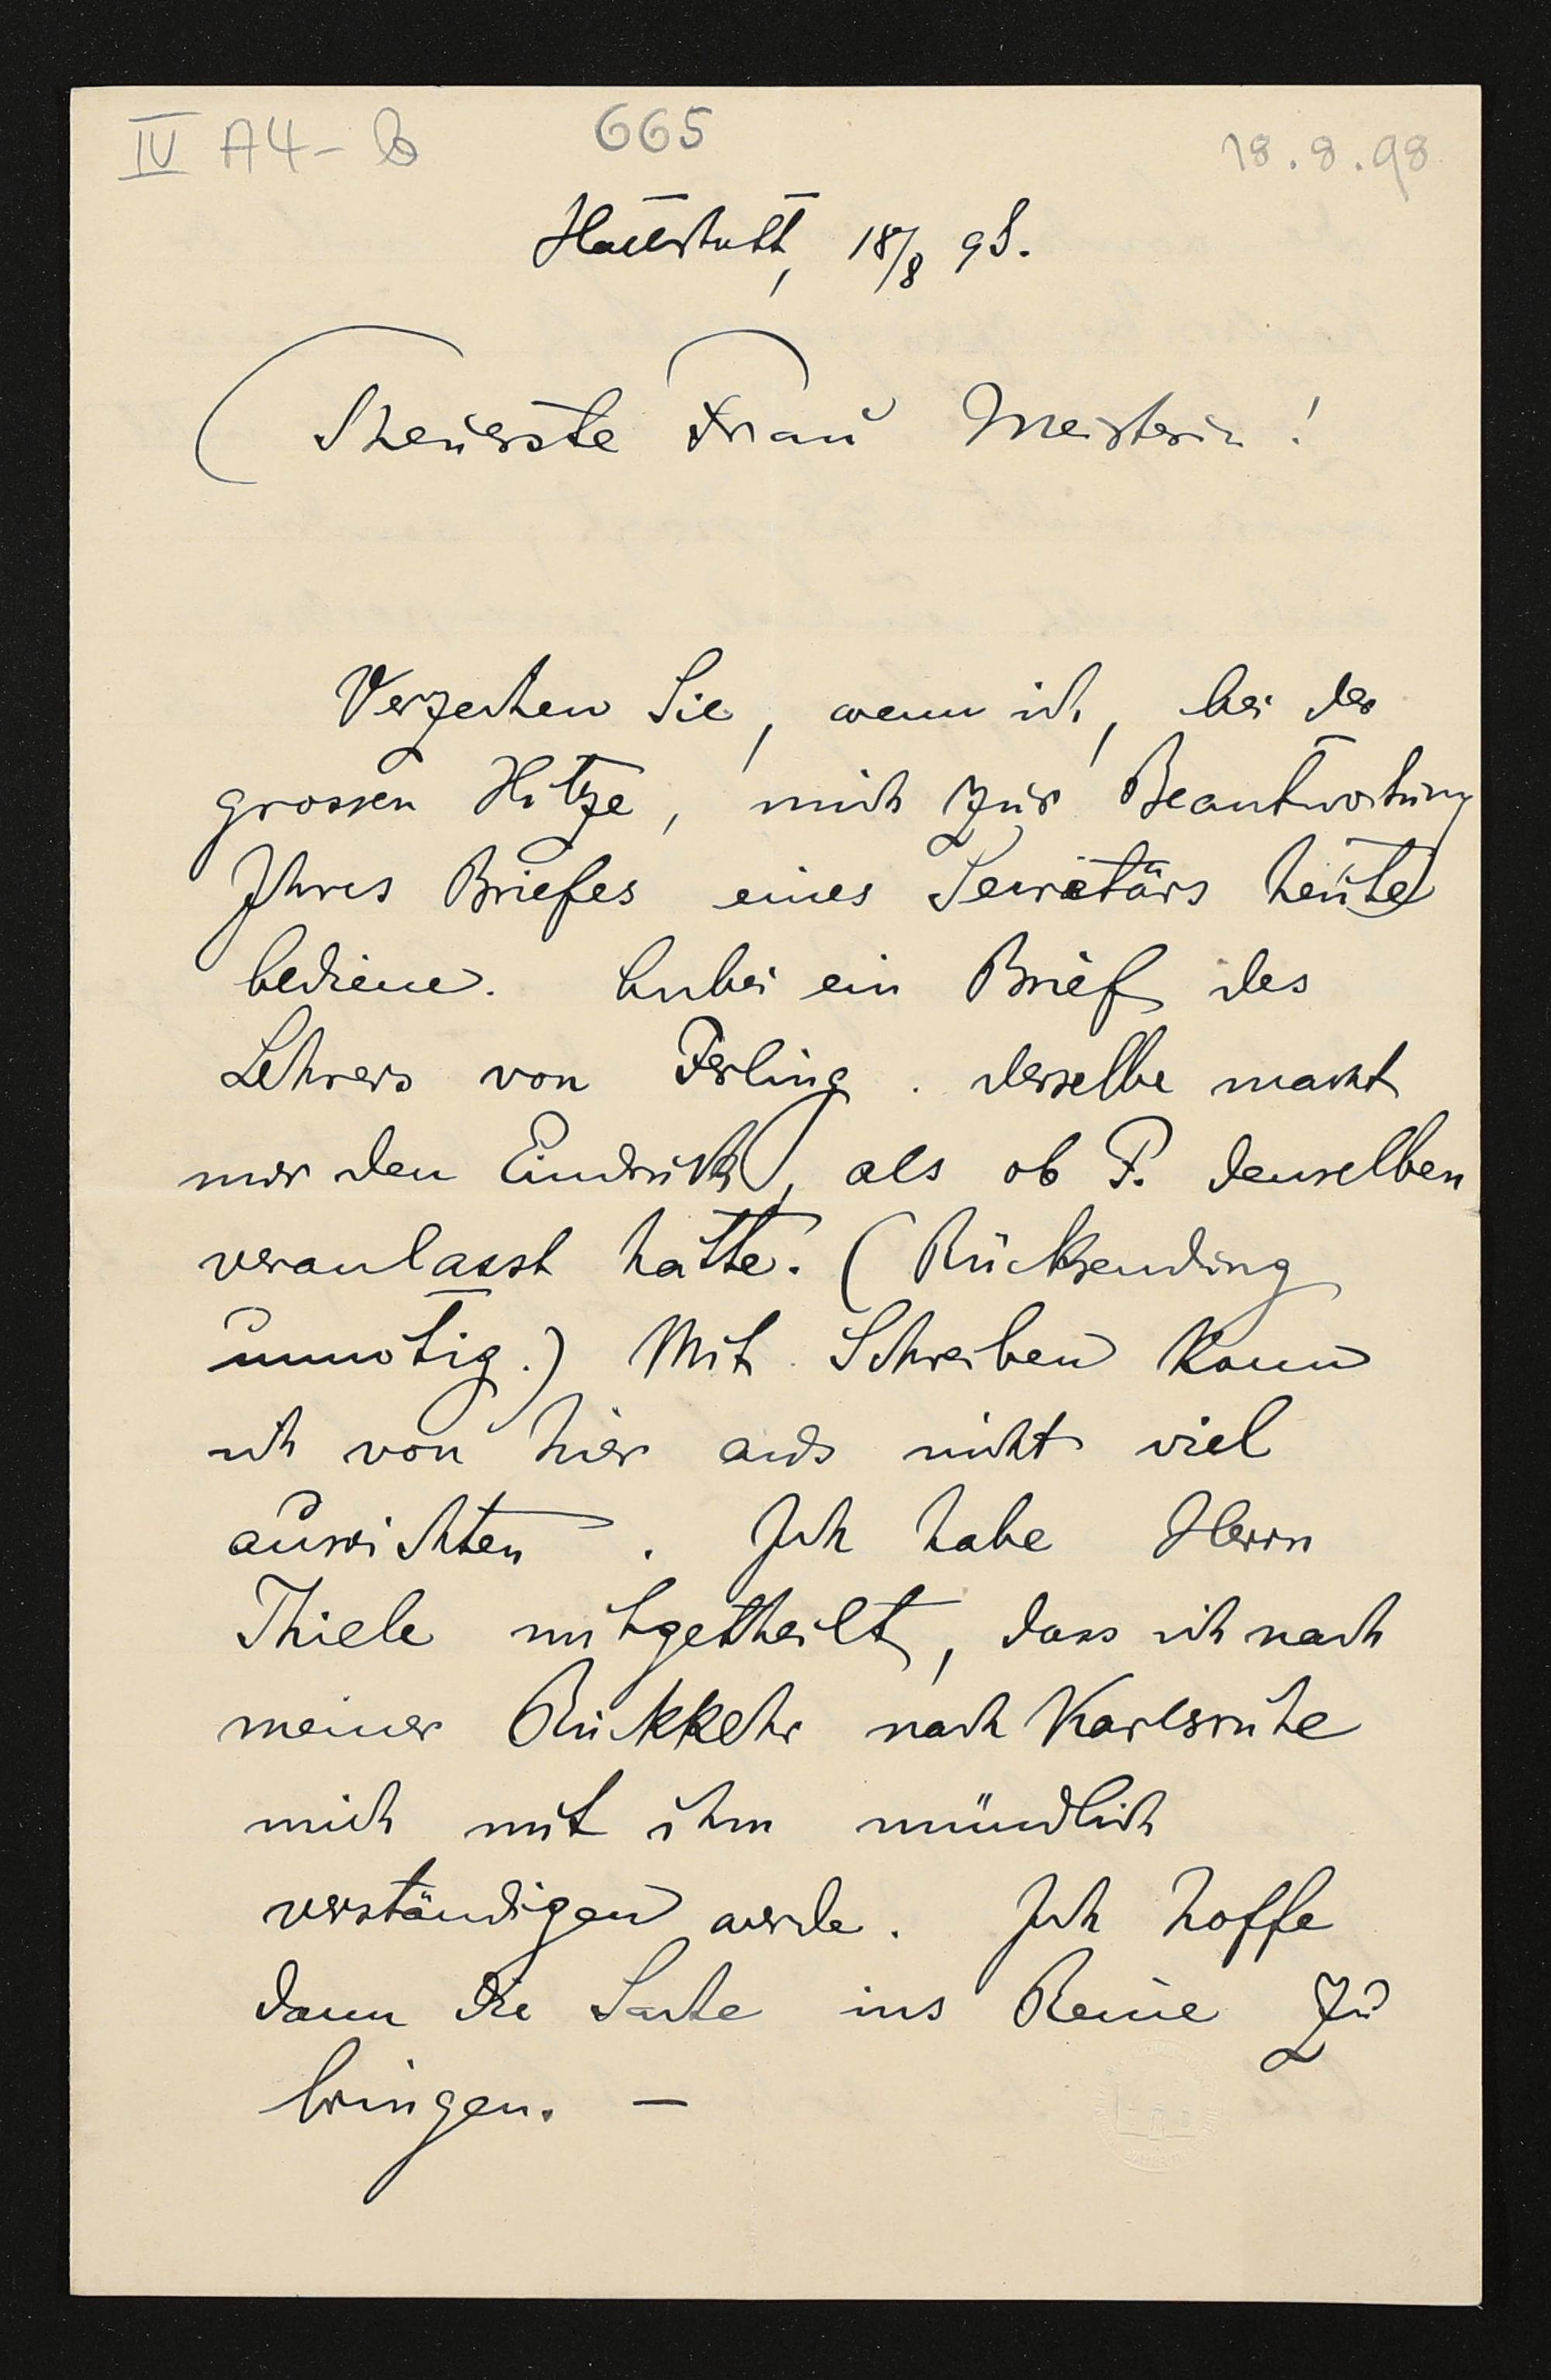 IV A4-B 665 18.8.98
Hallstatt, 18/8 98.
Theuerste Frau Meisterin!
Verzeihen Sie, wenn ich, bei der
grossen Hitze, mich zur Beantwortung
Ihres Briefes eines Secretärs heute
bediene. Anbei ein Brief des
Lehrers von Perling. derselbe macht
mir den Eindruck, als ob P. denselben
veranlasst hätte. (Rücksendung
unnötig.) Mit Schreiben kann
ich von hier aus nicht viel
ausrichten. Ich habe Herrn
Thiele mitgetheilt, dass ich nach
meiner Rückkehr nach Karlsruhe
mich mit ihm mündlich
verständigen werde. Ich hoffe
dann die Sache ins Reine zu
bringen. —